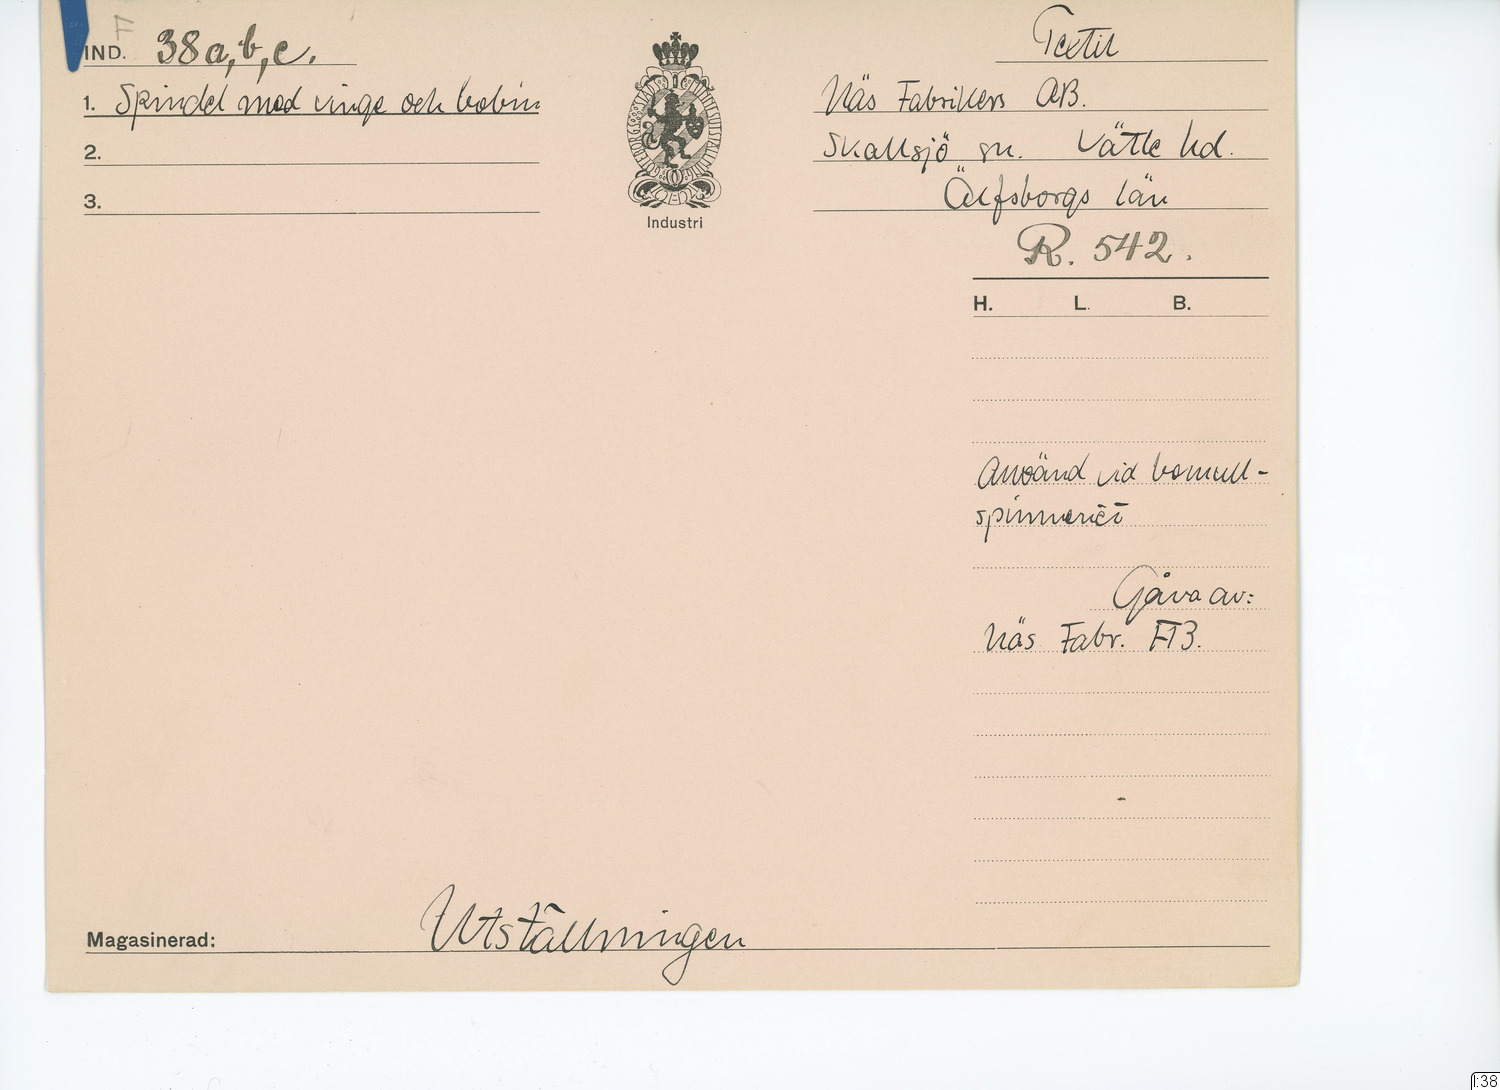 F
IND. 38a,b,c.
1. Spindel med vinge och bobin
2.
3.
GÖTEBORGS STADS MINNESUTSTÄLLNING
Industri
Textil
Näs Fabrikers AB.
Skallsjö sn. Vättle hd.
Älfsborgs län
R. 542.
H. L. B.
Använd vid bomull-
spinneriet
Gåva av:
Näs Fabr. AB.
Magasinerad: Utställningen
I:38